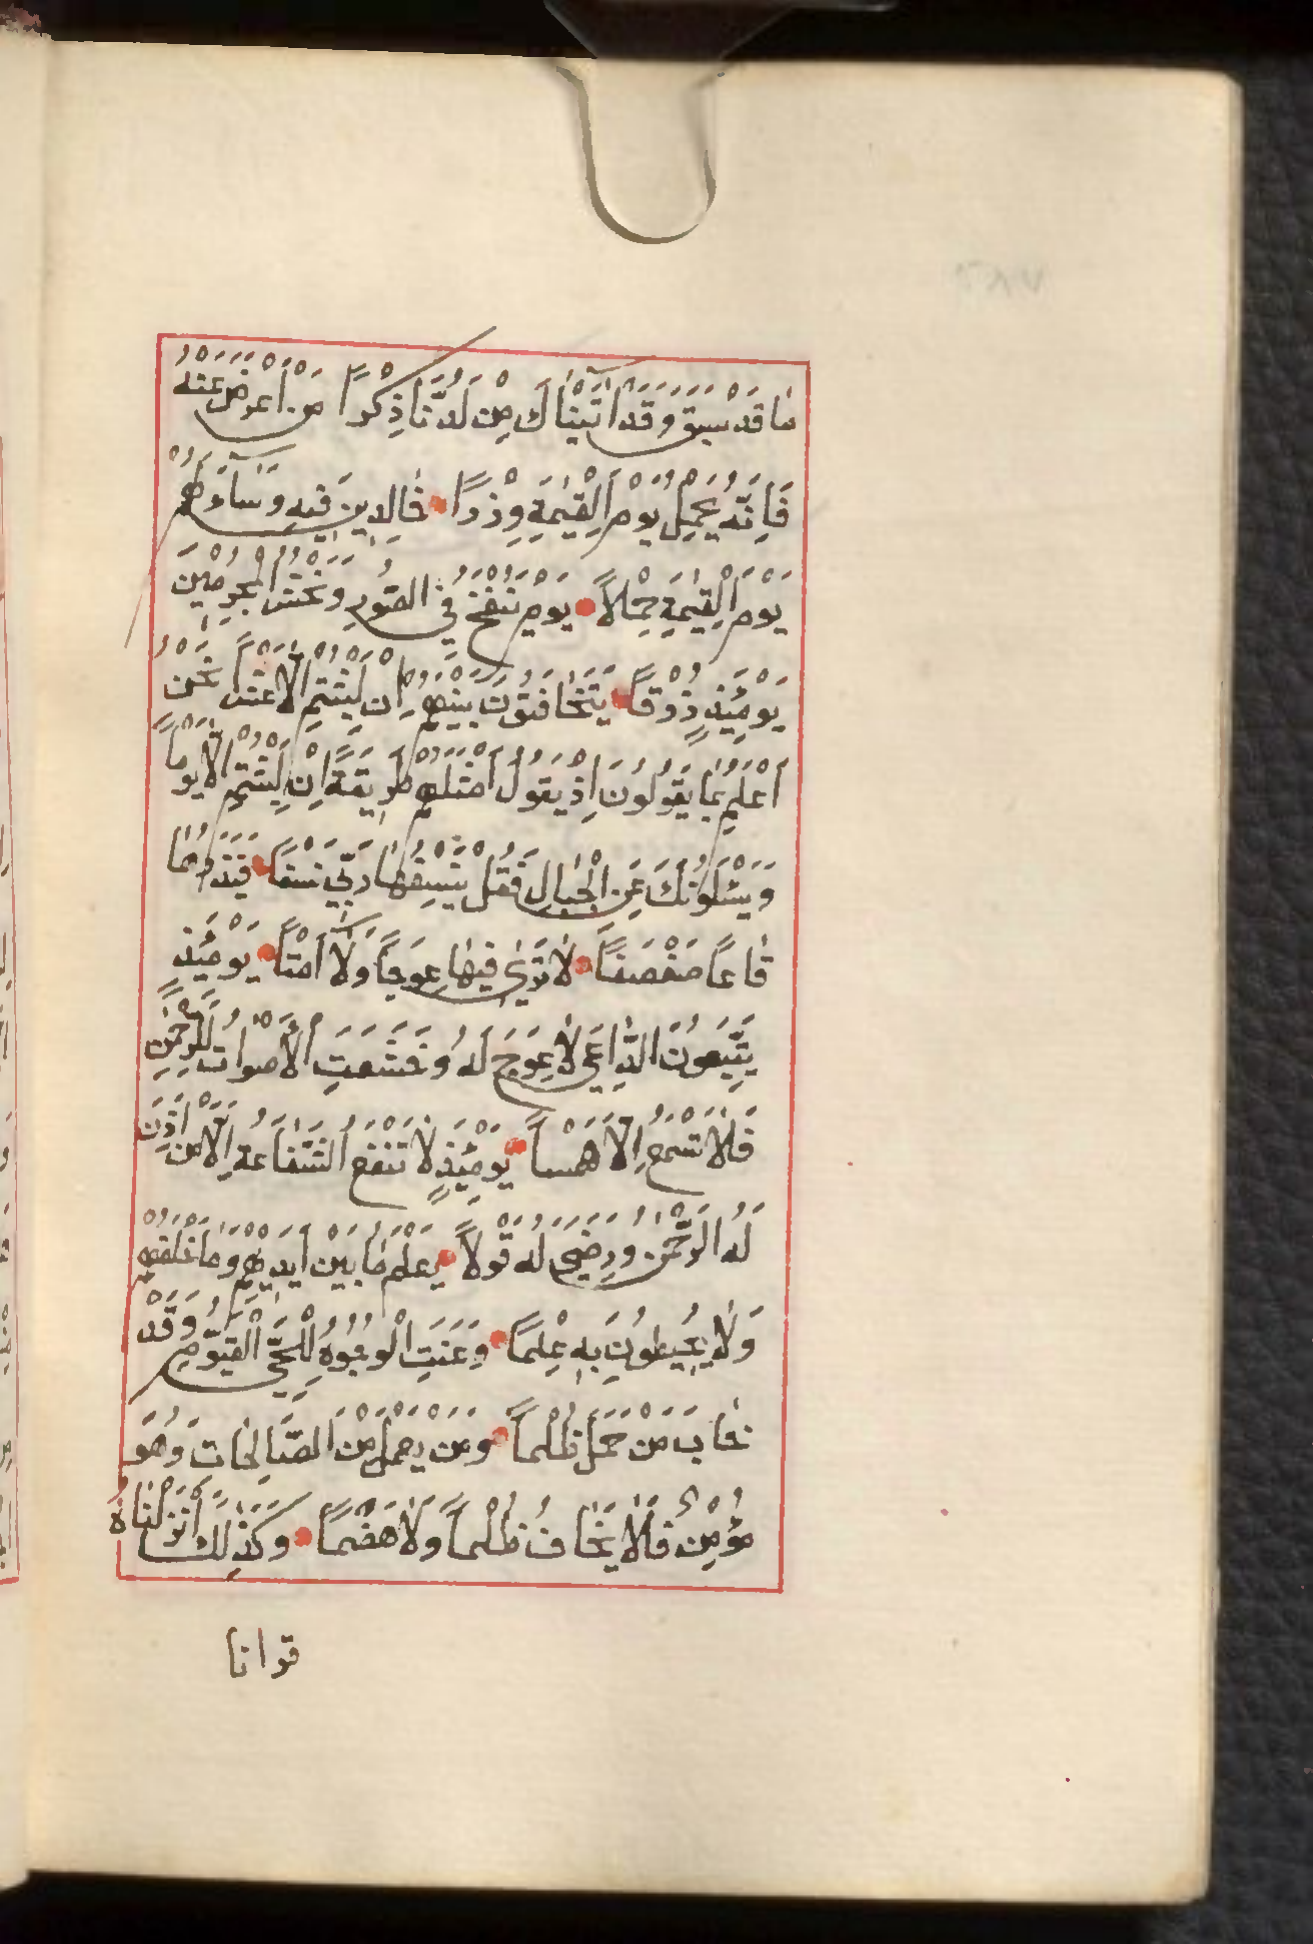 مَا قَدْ سَبَقَ وَقَدْ اٰتَيْنَاكَ مِنْ لَدُنَّا ذِكْرًا مَنْ اَعْرَضَ عَنْهُ
فَاِنَّهُ يَحْمِلُ يَوْمَ الْقِيٰمَةِ وِزْرًا خَالِدِينَ فِيهِ وَسَآءَ لَهُمْ
يَوْمَ الْقِيٰمَةِ حِمْلاً يَوْمَ يُنْفَخُ فِي الصُّورِ وَنَحْشُرُ الْمُجْرِمِينَ
يَوْمَئِذٍ زُرْقًا يَتَخَافَتُونَ بَيْنَهُمْ اِنْ لَبِثْتُمْ اِلَّا عَشْرًا نَحْنُ
اَعْلَمُ بِمَا يَقُولُونَ اِذْ يَقُولُ اَمْثَلُهُمْ طَرِيقَةً اِنْ لَبِثْتُمْ اِلَّا يَوْمًا
وَيَسْئَلُونَكَ عَنِ الْجِبَالِ فَقُلْ يَنْسِفُهَا رَبِّي نَسْفًا فَيَذَرُهَا
قَاعًا صَفْصَفًا لَا تَرٰى فِيهَا عِوَجًا وَلَآ اَمْتًا يَوْمَئِذٍ
يَتَّبِعُونَ الدَّاعِيَ لَا عِوَجَ لَهُ وَخَشَعَتِ الْاَصْوَاتُ لِلرَّحْمٰنِ
فَلَا تَسْمَعُ اِلَّا هَمْسًا يَوْمَئِذٍ لَا تَنْفَعُ الشَّفَاعَةُ اِلَّا مَنْ اَذِنَ
لَهُ الرَّحْمٰنُ وَرَضِيَ لَهُ قَوْلاً يَعْلَمُ مَا بَيْنَ اَيْدِيهِمْ وَمَا خَلْفَهُمْ
وَلَا يُحِيطُونَ بِهِ عِلْمًا وَعَنَتِ الْوُجُوهُ لِلْحَيِّ الْقَيُّومِ وَقَدْ
خَابَ مَنْ حَمَلَ ظُلْمًا وَمَنْ يَعْمَلْ مِنَ الصَّالِحَاتِ وَهُوَ
مُؤْمِنٌ فَلَا يَخَافُ ظُلْمًا وَلَا هَضْمًا وَكَذٰلِكَ اَنْزَلْنَاهُ
قرانا